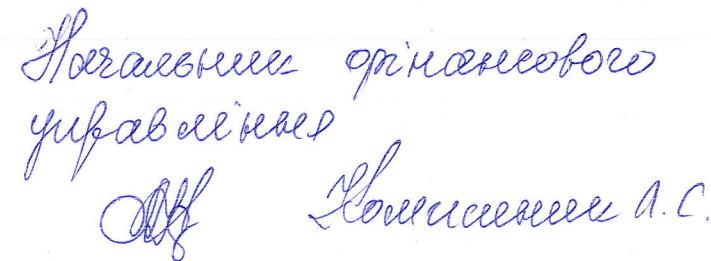 Начальник фінансового
управління
Комишник А.С.